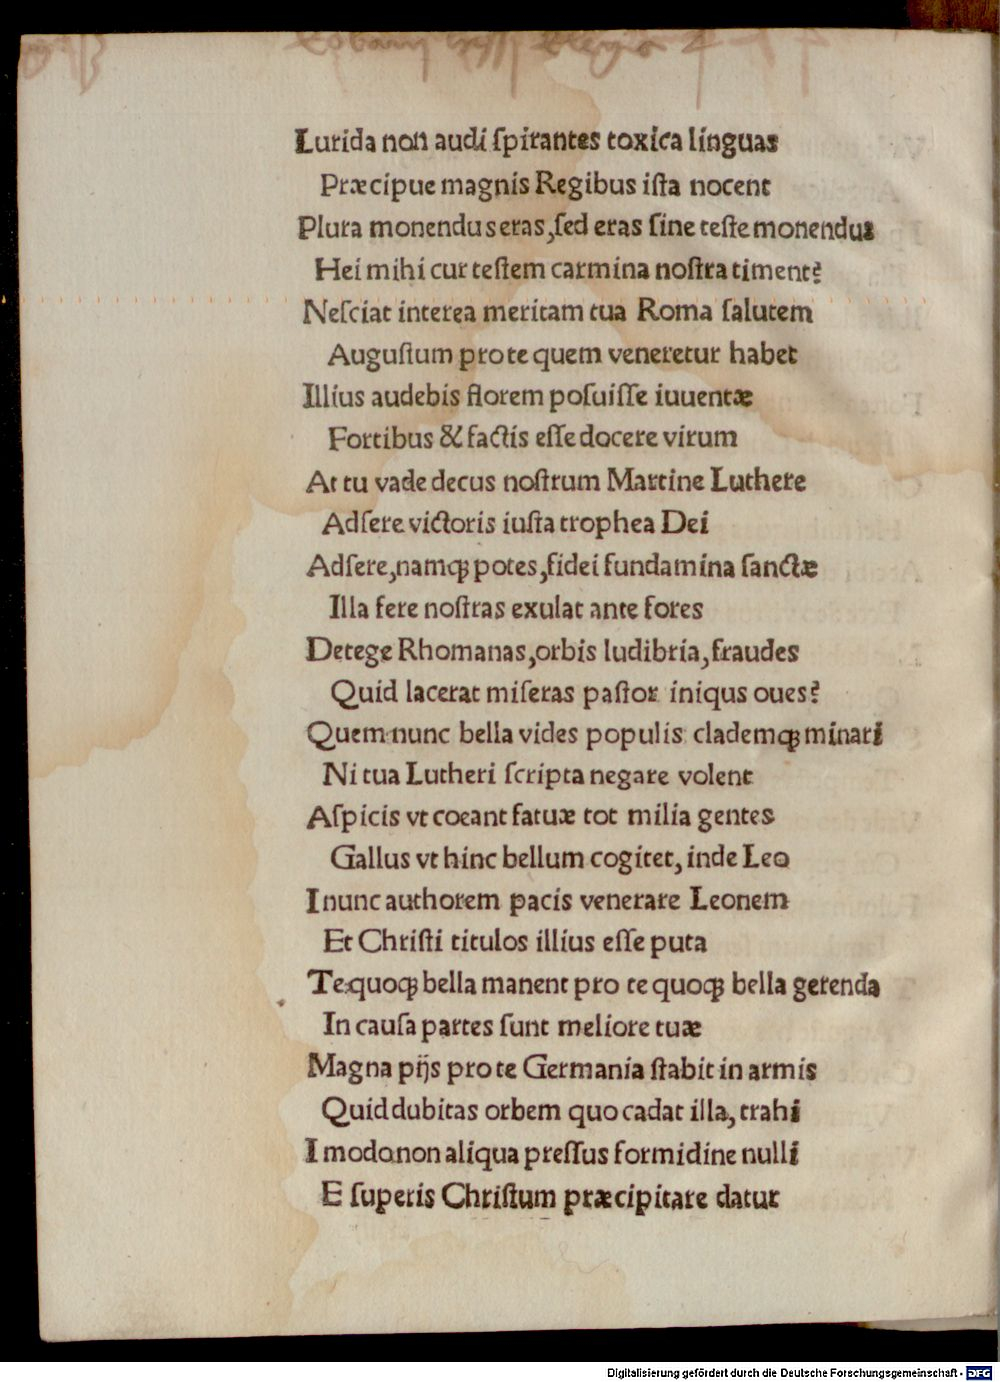 Lurida non audi ſpirantes toxica linguas
Præcipue magnis Regibus iſta nocent
Plura monendus eras, ſed eras ſine teſte monendus
Hei mihi cur teſtem carmina noſtra timent?
Neſciat interea meritam tua Roma ſalutem
Auguſtum pro te quem veneretur habet
Illius audebis florem poſuiſſe iuuentæ
Fortibus & factis eſſe docere virum
At tu vade decus noſtrum Martine Luthere
Adſere victoris iuſta trophea Dei
Adſere, namqꝫ potes, fidei fundamina ſanctæ
Illa fere noſtras exulat ante fores
Detege Rhomanas, orbis ludibria, fraudes
Quid lacerat miſeras paſtor iniqus oues?
Quem nunc bella vides populis clademqꝫ minari
Ni tua Lutheri ſcripta negare volent
Aſpicis vt coeant fatuæ tot milia gentes
Gallus vt hinc bellum cogitet, inde Leo
I nunc authorem pacis venerare Leonem
Et Chriſti titulos illius eſſe puta
Te quoqꝫ bella manent pro te quoqꝫ bella gerenda
In cauſa partes ſunt meliore tuæ
Magna pijs pro te Germania ſtabit in armis
Quid dubitas orbem quo cadat illa, trahi
I modo non aliqua preſſus formidine nulli
E ſuperis Chriſtum præcipitare datur
Digitalisierung gefördert durch die Deutsche Forschungsgemeinschaft - DFG